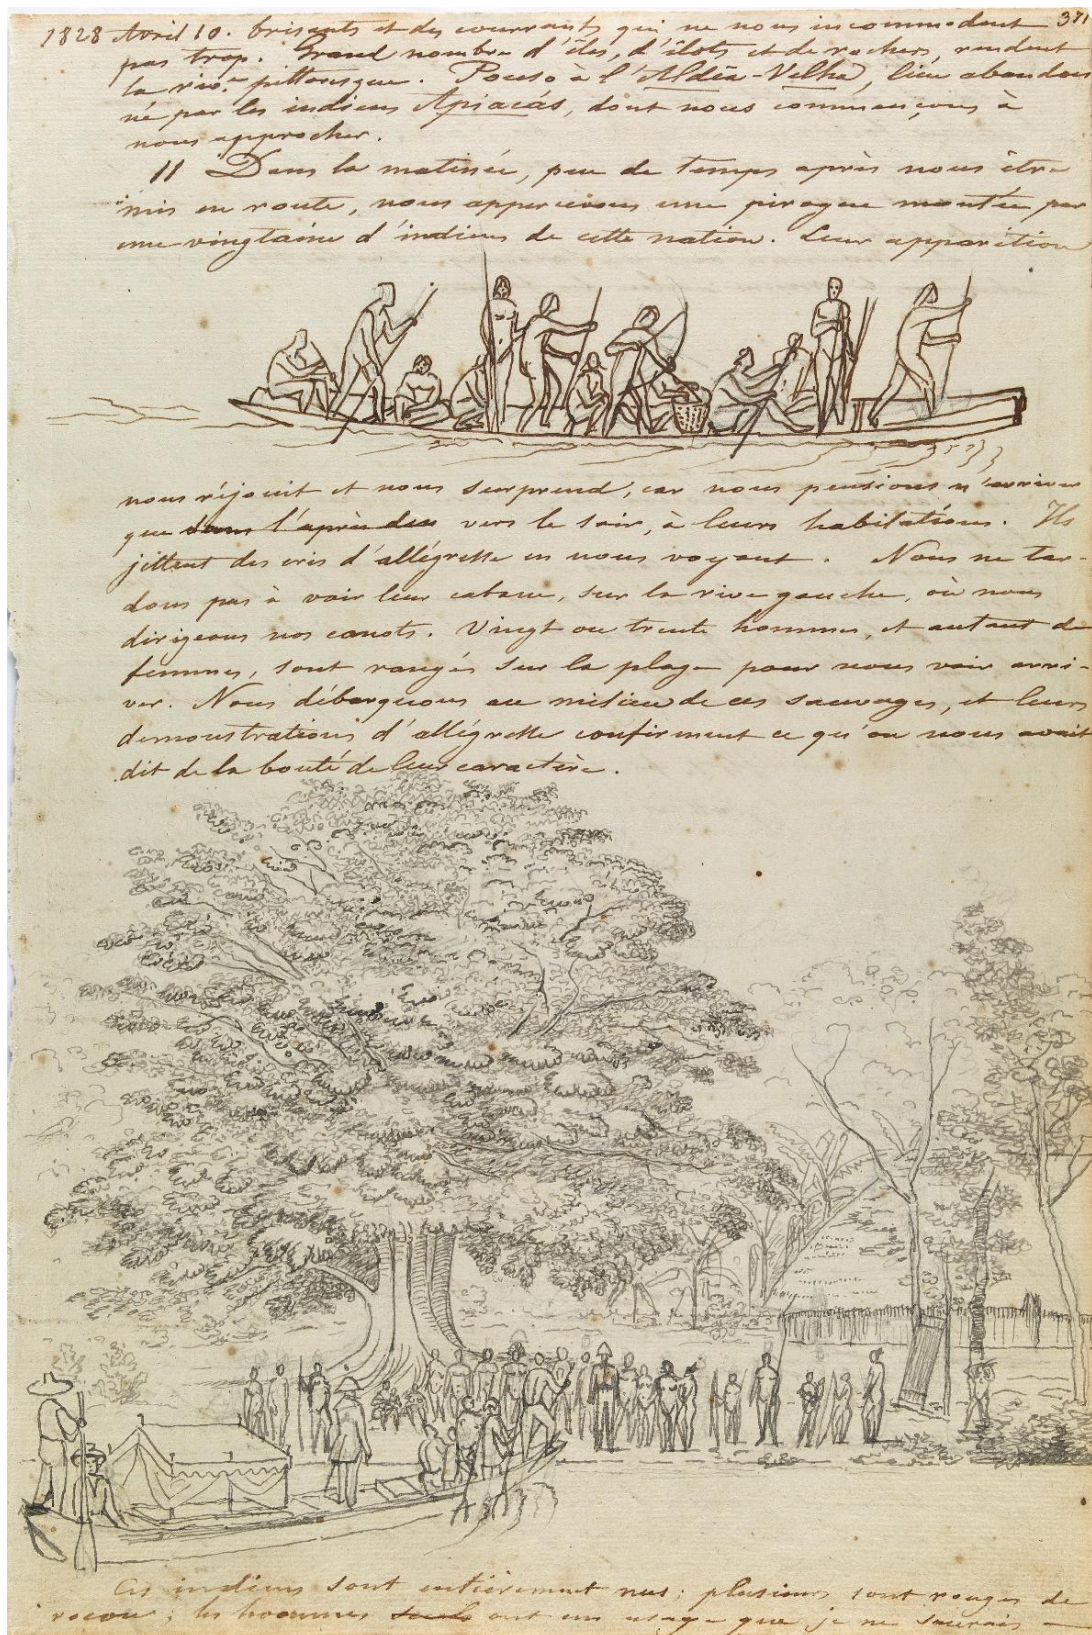 371
1828 Avril 10. brisants et des courrants qui ne nous incommodent
pas trop. Grand nombre d'îles, d'îlots et de rochers, rendent
la riv.e pittoresque. Pouso à l'Aldêa-Velha, lieu abandon
né par les indiens Apiacás, dont nous commençons à
nous approcher.
11 Dans la matinée, peu de temps après nous être
mis en route, nous appercevons une pirogue montée par
une vingtaine d'indiens de cette nation. Leur apparition
nous réjouit et nous surprend, car nous pensions n'arriver
que dans l'après dîn vers le soir, à leurs habitations. Ils
jettent des cris d'allégresse en nous voyant. Nous ne tar-
dons pas à voir leur cabane, sur la rive gauche, où nous
dirigeons nos canots. Vingt ou trente hommes, et autant de
femmes, sont rangés sur la plage pour nous voir arri-
ver. Nous débarquons au milieu de ces sauvages, et leurs
demonstrations d'allégresse confirment ce qu'on nous avait
dit de la bonté de leur caractère.
Ces indiens sont entièrement nus; plusieurs sont rouges de
rocou; les hommes seuls ont un usage que je ne saurais